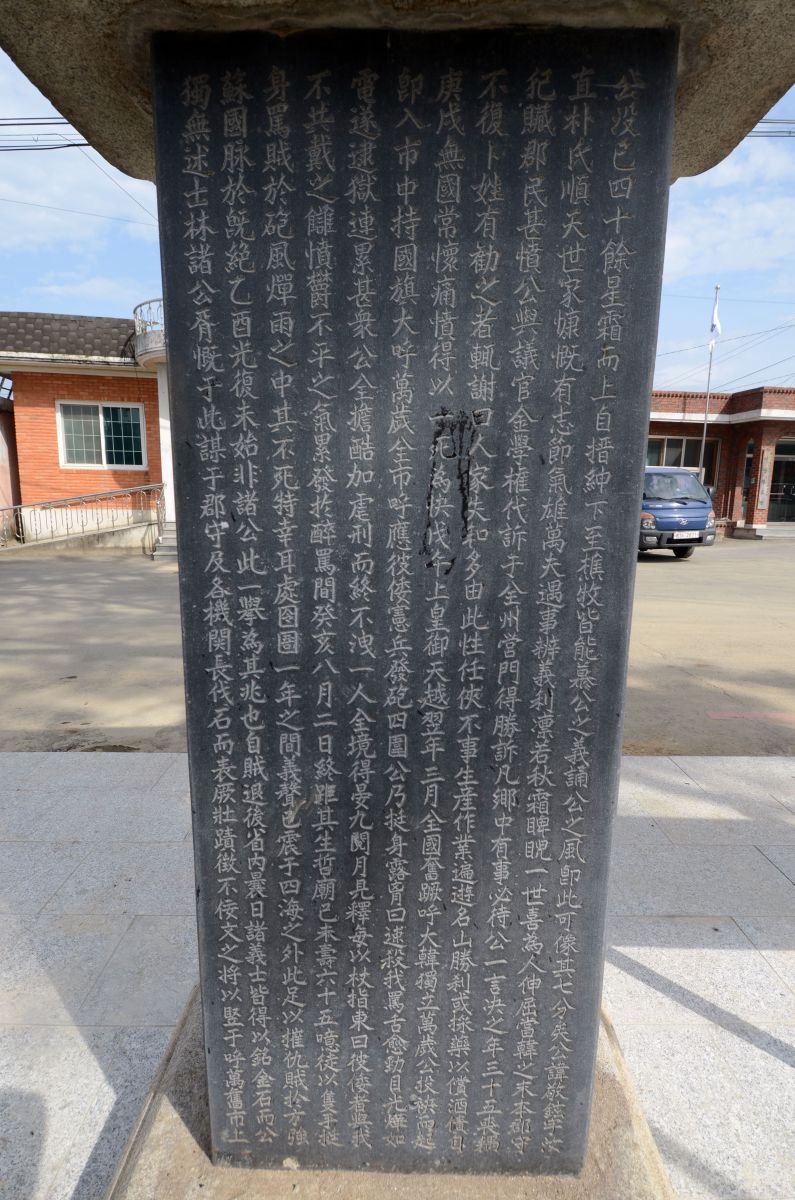 公沒已四十餘星霜而上自搢紳下至樵牧皆能慕公之義誦公之風卽此可像其七分矣公諱敬
直朴氏順天世家慷慨有志節氣雄萬夫遇事辦義利凜若秋霜睥睨一世喜為人伸屈當韓之末本郡守
犯贓郡民甚憤公與議官金學權代訴于全州營門得勝訴凡鄉中有事必待公一言决之年三十五喪
不復卜姓有勸之者輒謝曰人家失和多由此性任俠不事生産作業遍遊名山勝刹或採藥以償酒債
庚戌無國常懷痛憤得以一死為快戊午上皇御天越翌年三月全國奮蹶呼大韓獨立萬歲公投袂而起
卽入市中持國旗大呼萬歲全市呼應役倭憲兵發砲四圍公乃挺身露胷曰速殺我罵舌愈勁目光燁如
電遂逮獄連累甚衆公全擔酷加虐刑而終不洩一人全境得晏九閱月見釋每以杖指東曰彼倭者與我
不共戴之讎憤欝不平之氣累發於醉罵間癸亥八月二日終距其生哲廟己未壽六十五噫徒以隻手挺
身罵賊於砲風彈雨之中其不死特幸耳處囹圄一年之間義聲已震于四海之外此足以摧仇賊於方強
蘇國脉於旣絶乙酉光復未始非諸公此一擧為其兆也自賊退後省內曩日諸義士皆得以銘金石而公
獨無述士林諸公胥慨于此謀于郡守及各機関長伐石而表厥壯蹟徵不佞文之將以竪于呼萬舊市上